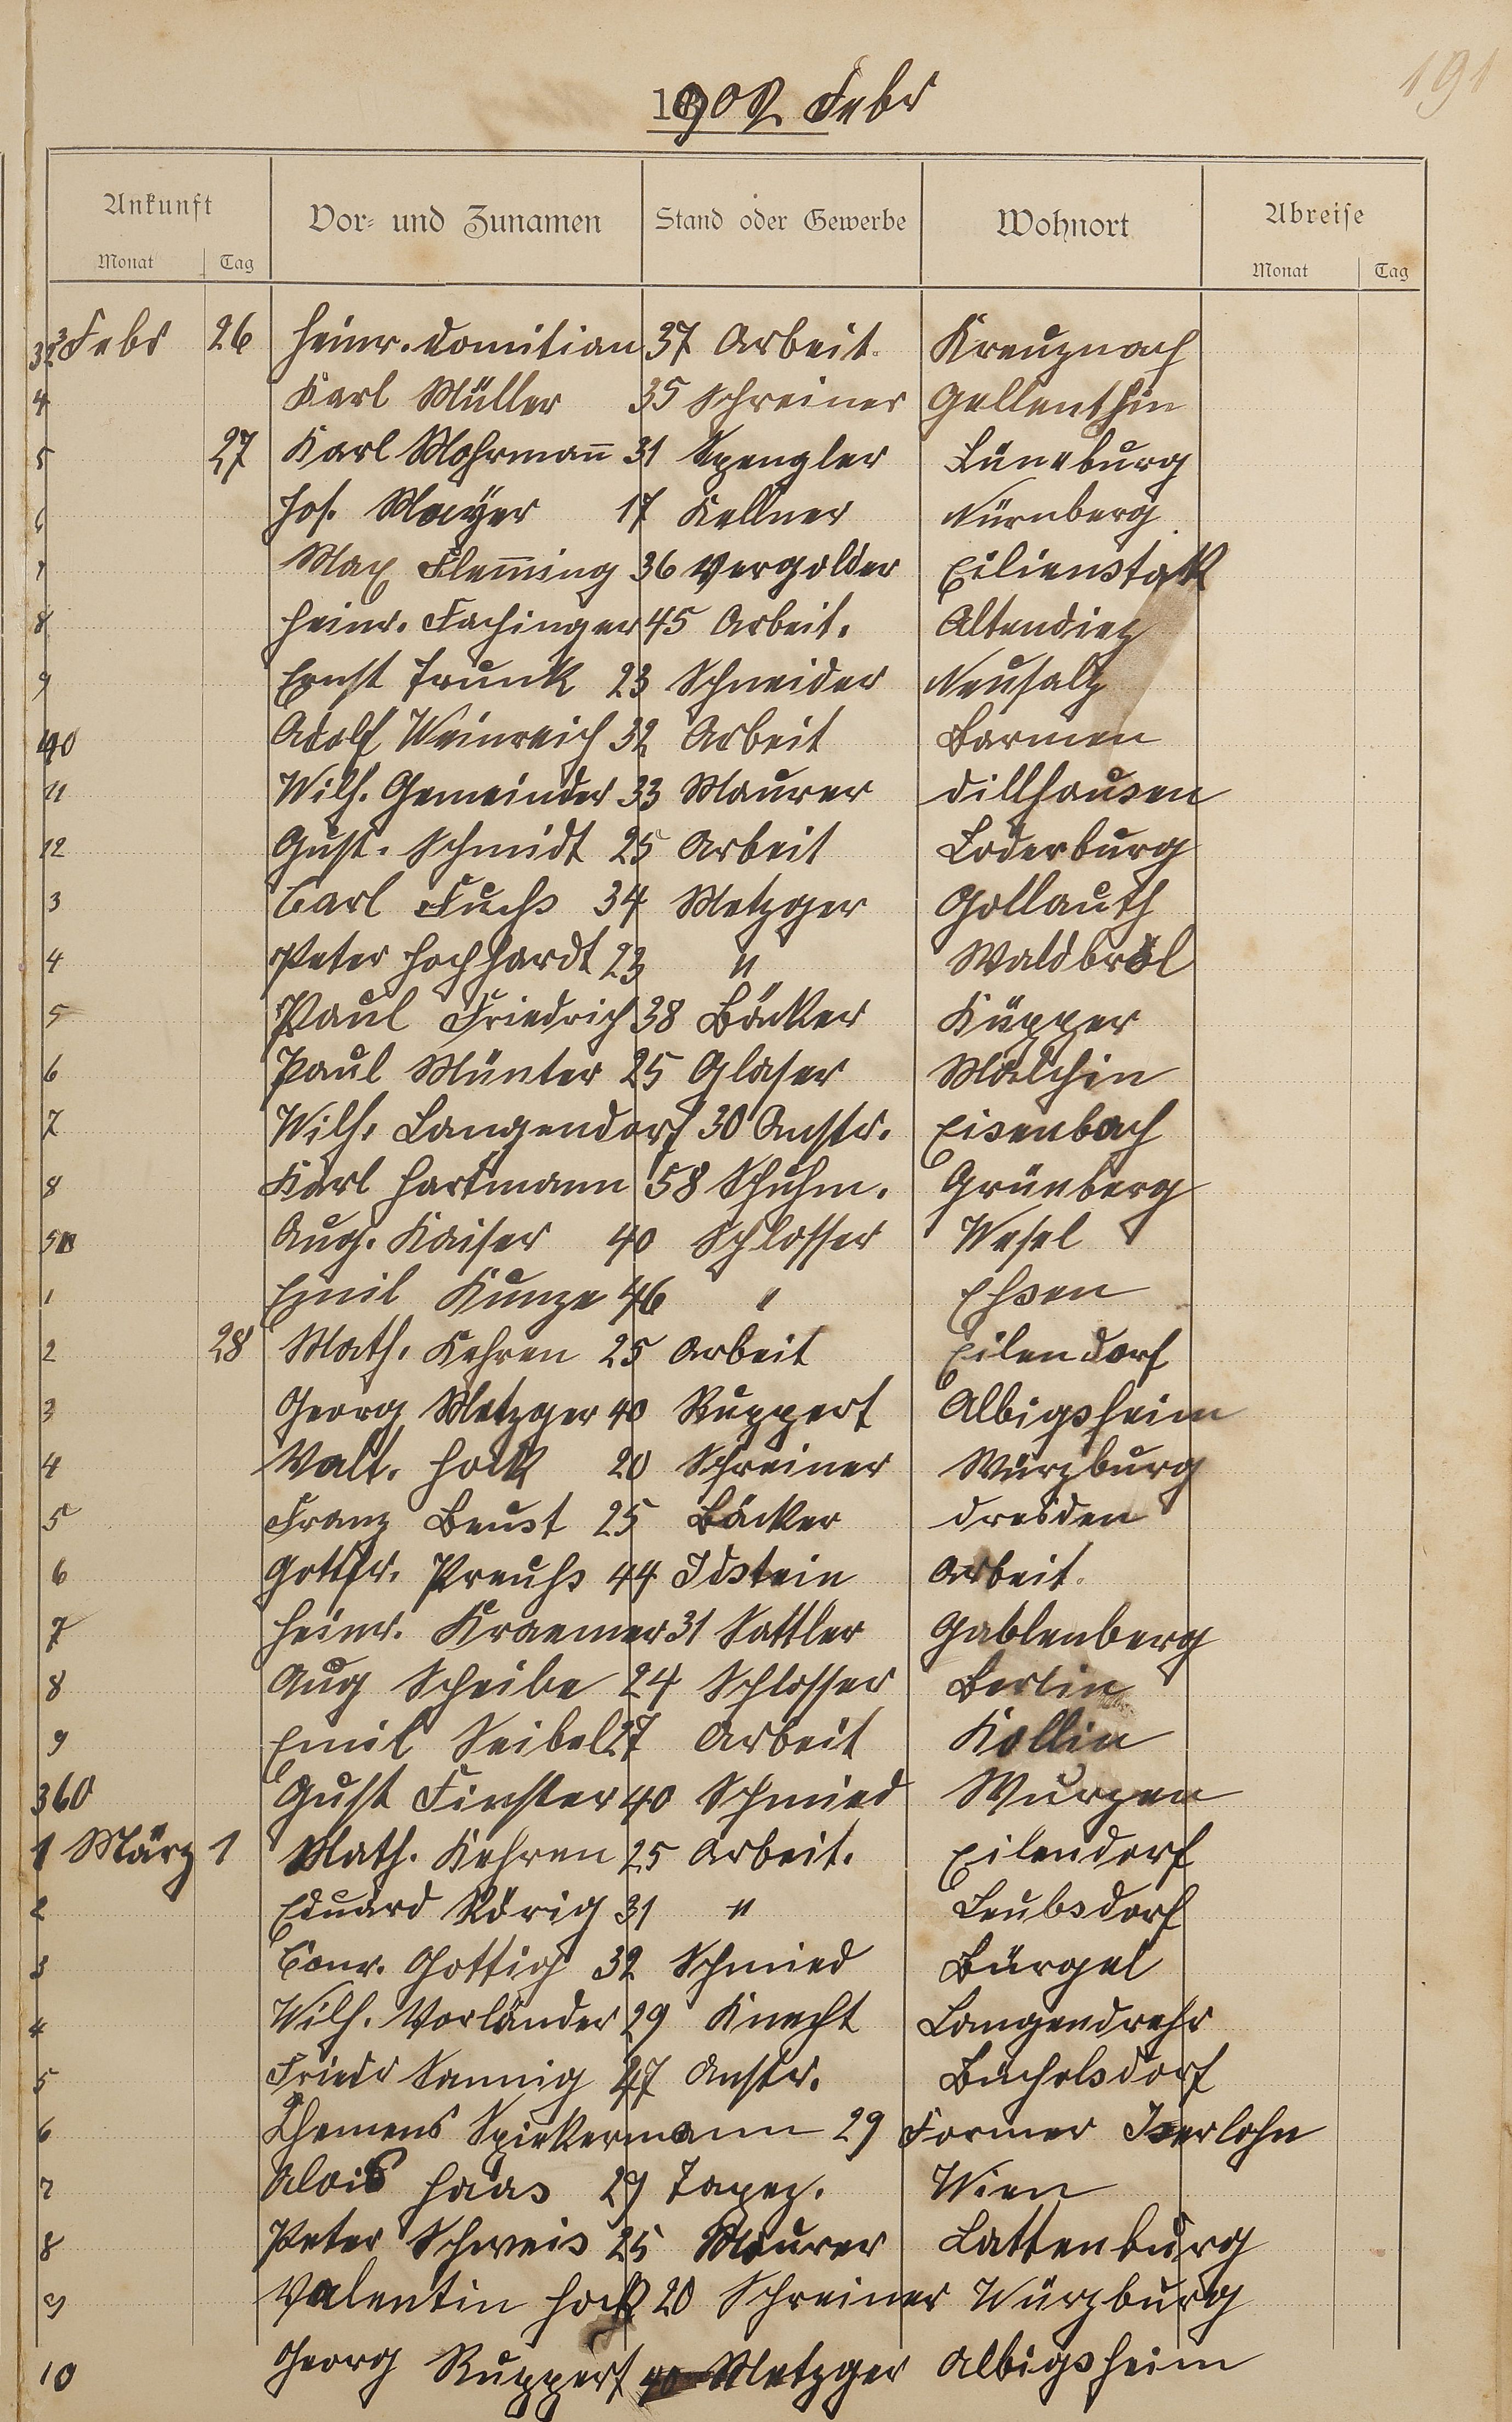 191
1902 Febr
Ankunft Vor- und Zunamen Stand oder Gewerbe Wohnort Abreise
Monat Tag Monat Tag
Febr 26 Heinr. Domitian 37 Arbeit. Kreuznach
4 Karl Müller 35 Schreiner Gellenthin
5 27 Karl Mohrmann̄ 31 Spengler Lüneburg
6 Jos. Mayer 17 Kellner Nürnberg
7 Max Flem̄ing 36 Vergolder Eilienstatt
8 Heinr. Fachinger 45 Arbeit. Altendiez
9 Ernst Trunk 23 Schneider Neusalz
40 Adolf Weinreich 32 Arbeit Barmen
11 Wilh. Gemeinder 33 Maurer Dillhausen
12 Gust. Schmidt 25 Arbeit Loderburg
3 Carl Fuchs 34 Metzger Gollauth
4 Peter Hochhardt 23 " Waldbröl
5 Paul Friedrich 38 Bäcker Küpper
6 Paul Münter 25 Glaser Malchin
7 Wilh. Langendorf 30 Anstr. Eisenbach
8 Karl Hartmann 58 Schuhm. Grünberg
50 Aug. Kaiser 40 Schlosser Wesel
1 Emil Kunze 46 " Essen
2 28 Math. Kehren 25 Arbeit Eilendorf
3 Georg Metzger 40 Ruppert Albigsheim
4 Valt. Hock 20 Schreiner Würzburg
5 Franz Beust 25 Bäcker Dresden
6 Gottfr. Preuhs 44 Idstein Arbeit.
7 Heinr. Kraemer 31 Sattler Gablenberg
8 Aug Scheibe 24 Schlosser Berlin
9 Emil Seibel 27 Arbeit Kollin
360 Gust Finster 40 Schmied Wurzen
1 März 1 Math. Kehren 25 Arbeit. Eilendorf
2 Eduard Rörig 31 " Leubsdorf
3 Conr. Gottig 32 Schmied Bürgel
4 Wilh. Vorländer 29 Knecht Langendrehr
5 Friedr Sannig 47 Anstr. Bücholsdorf
6 Clemens Spiekermann 29 Former Iserlohn
7 Alois Haas 29 Tapez. Wien
8 Peter Schweis 25 Maurer Lattenburg
9 Valentin Hock 20 Schreiner Würzburg
10 Georg Ruppert 40 Metzger Albigsheim